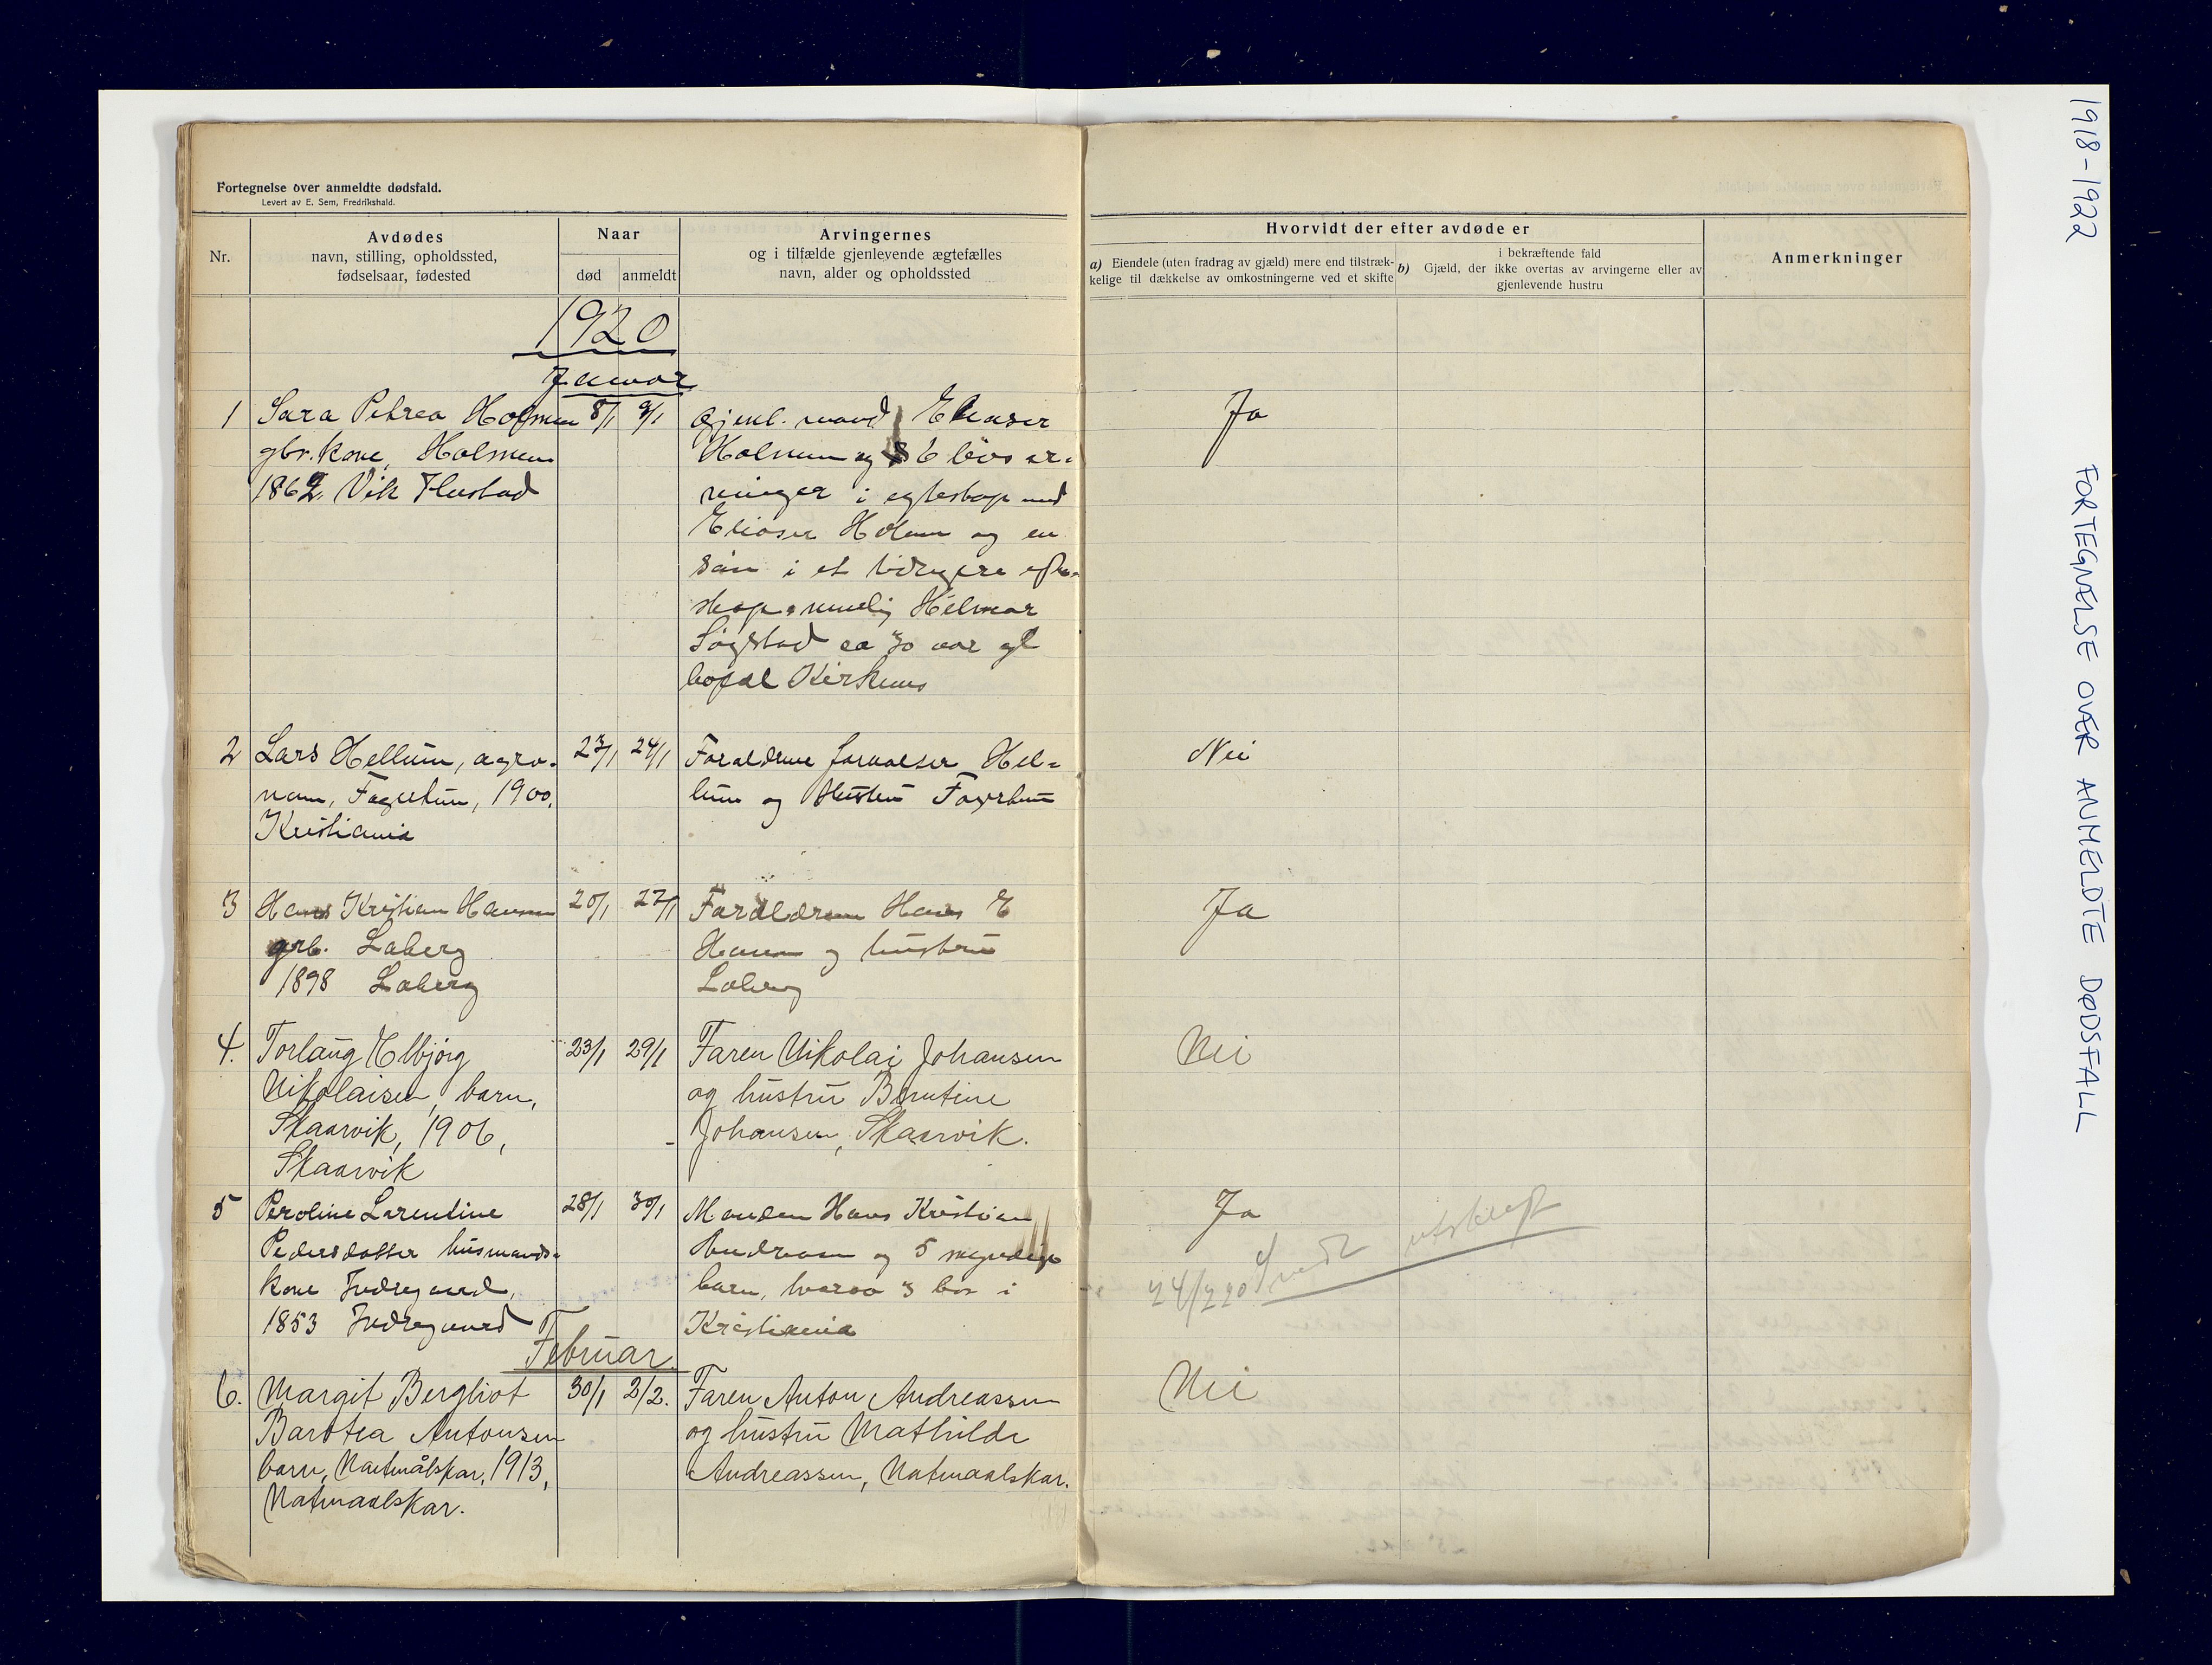 Fortegnelse over anmeldte dødsfald.
Levert av E. Sem, Fredrikshald.
Nr.
Avdødes
navn, stilling, opholdssted,
fødselsaar, fødested
Naar
død
anmeldt
Arvingernes
og i tilfælde gjenlevende ægtefælles
navn, alder og opholdssted
Hvorvidt der efter avdøde er
a) Eiendele (uten fradrag av gjæld) mere end tilstræk-
kelige til dækkelse av omkostningerne ved et skifte
i bekræftende fald
b) Gjæld, der ikke overtas av arvingerne eller av
gjenlevende hustru
Anmerkninger
1920
Januar
1
Sara Petrea Holmen
gbr. kone, Holmen
1862, Vik
8/1 9/1
Gjenl. mand Elieser
Holmen og 6 livsar-
vinger i egteskap med
Elieser Holmen og en
søn i et tidligere egte-
skap nemlig Helmar
Søgstad ca 30 aar gl
bopæl Kirkenes
Ja
2
Lars Hellum, agro-
nom, Fagertun, 1900,
Kristiania
23/1 24/1
Foreldrene forvalter Hel-
lum og Hustru Fagertun
Nei
3
Hans Kristian Hansen
grb. Laberg
1898 Laberg
20/1 27/1
Foreldrene Hans E
Hansen og hustru
Laberg
Ja
4.
Torlaug Elbjørg
Nikolaisen, barn,
Skaarvik, 1906,
Skaarvik
23/1 29/1
Faren Nikolai Johansen
og hustru Berntine
Johansen, Skaarvik.
Nei
5
Peroline Larentine
Pedersdatter husmands-
kone Indregaard,
1853 Indregaard
28/1 30/1
Manden Hans Kristian
Andreasen og 5 myndige
barn, hvorav 3 bor i
Kristiania
Ja
utskrift
Februar.
6.
Margit Bergliot
Barotea Antonsen
barn, Natmålskar, 1913,
Natmaalskar.
30/1 2/2.
Faren Anton Andreassen
og hustru Mathilde
Andreassen, Natmaalskar.
Nei
1918-1922 FORTEGNELSE OVER ANMELDTE DØDSFALL